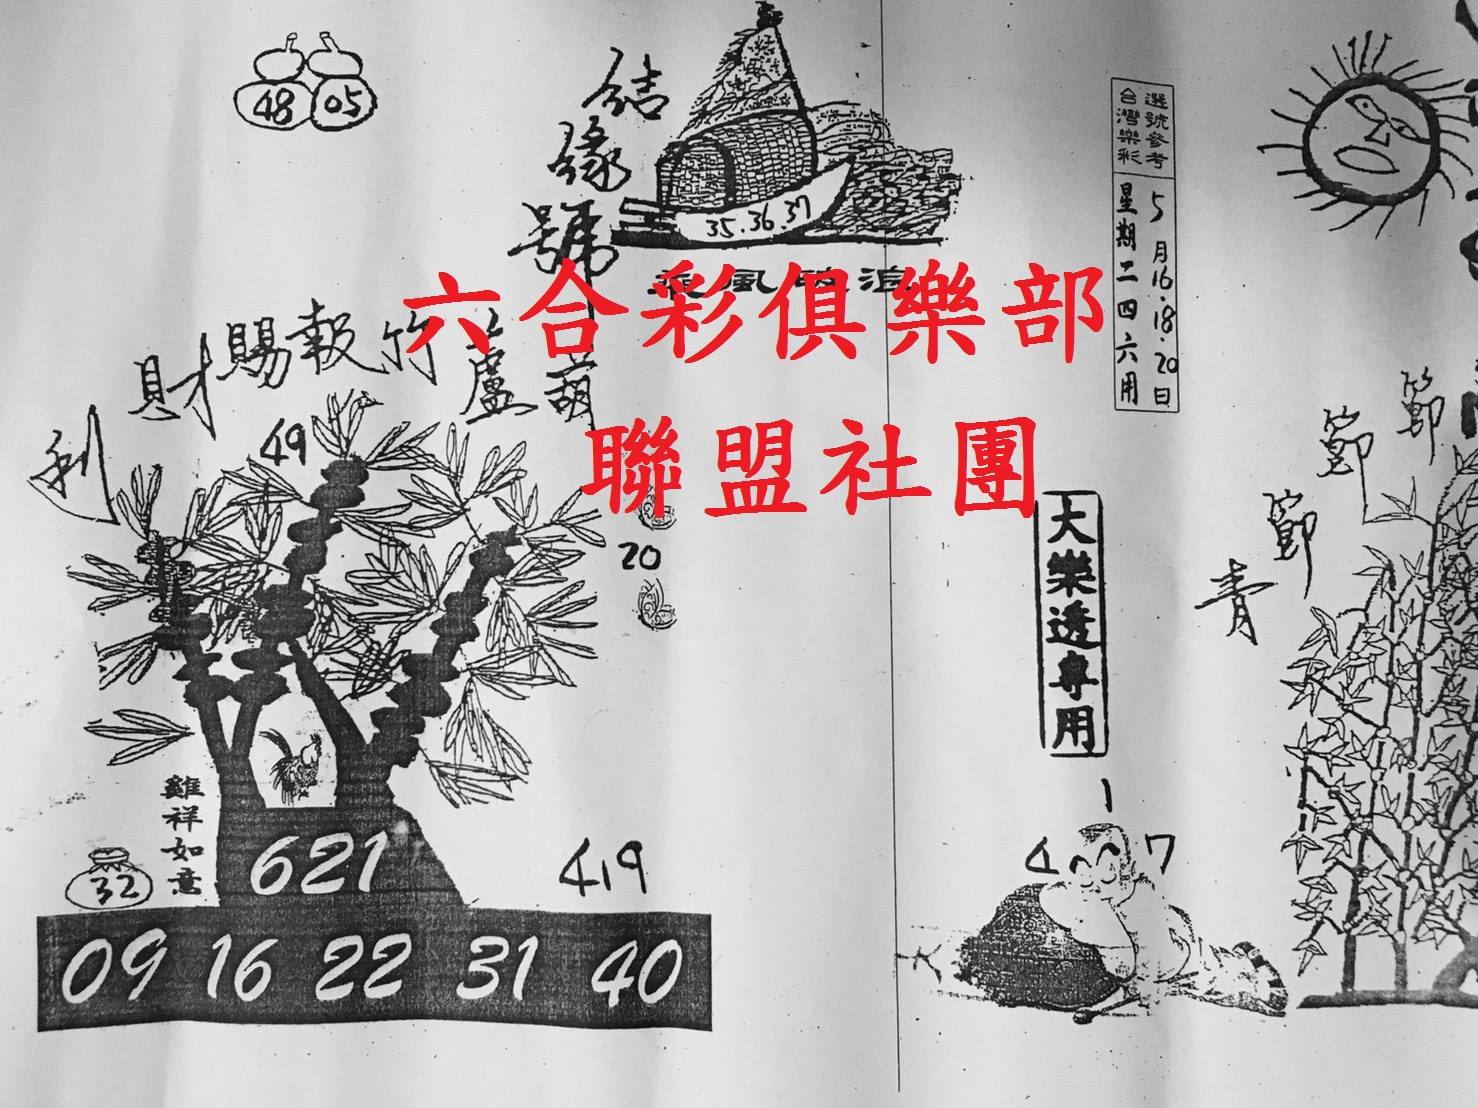 48 05
結緣號
35.36.37
乘風破浪
六合彩俱樂部
聯盟社團
選號參考
台灣樂彩
5月16.18.20日
星期二四六用
葫蘆
竹報賜財利
49
20
大樂透專用
節節節
青
雞祥如意
32
621
419
1
4 7
09 16 22 31 40